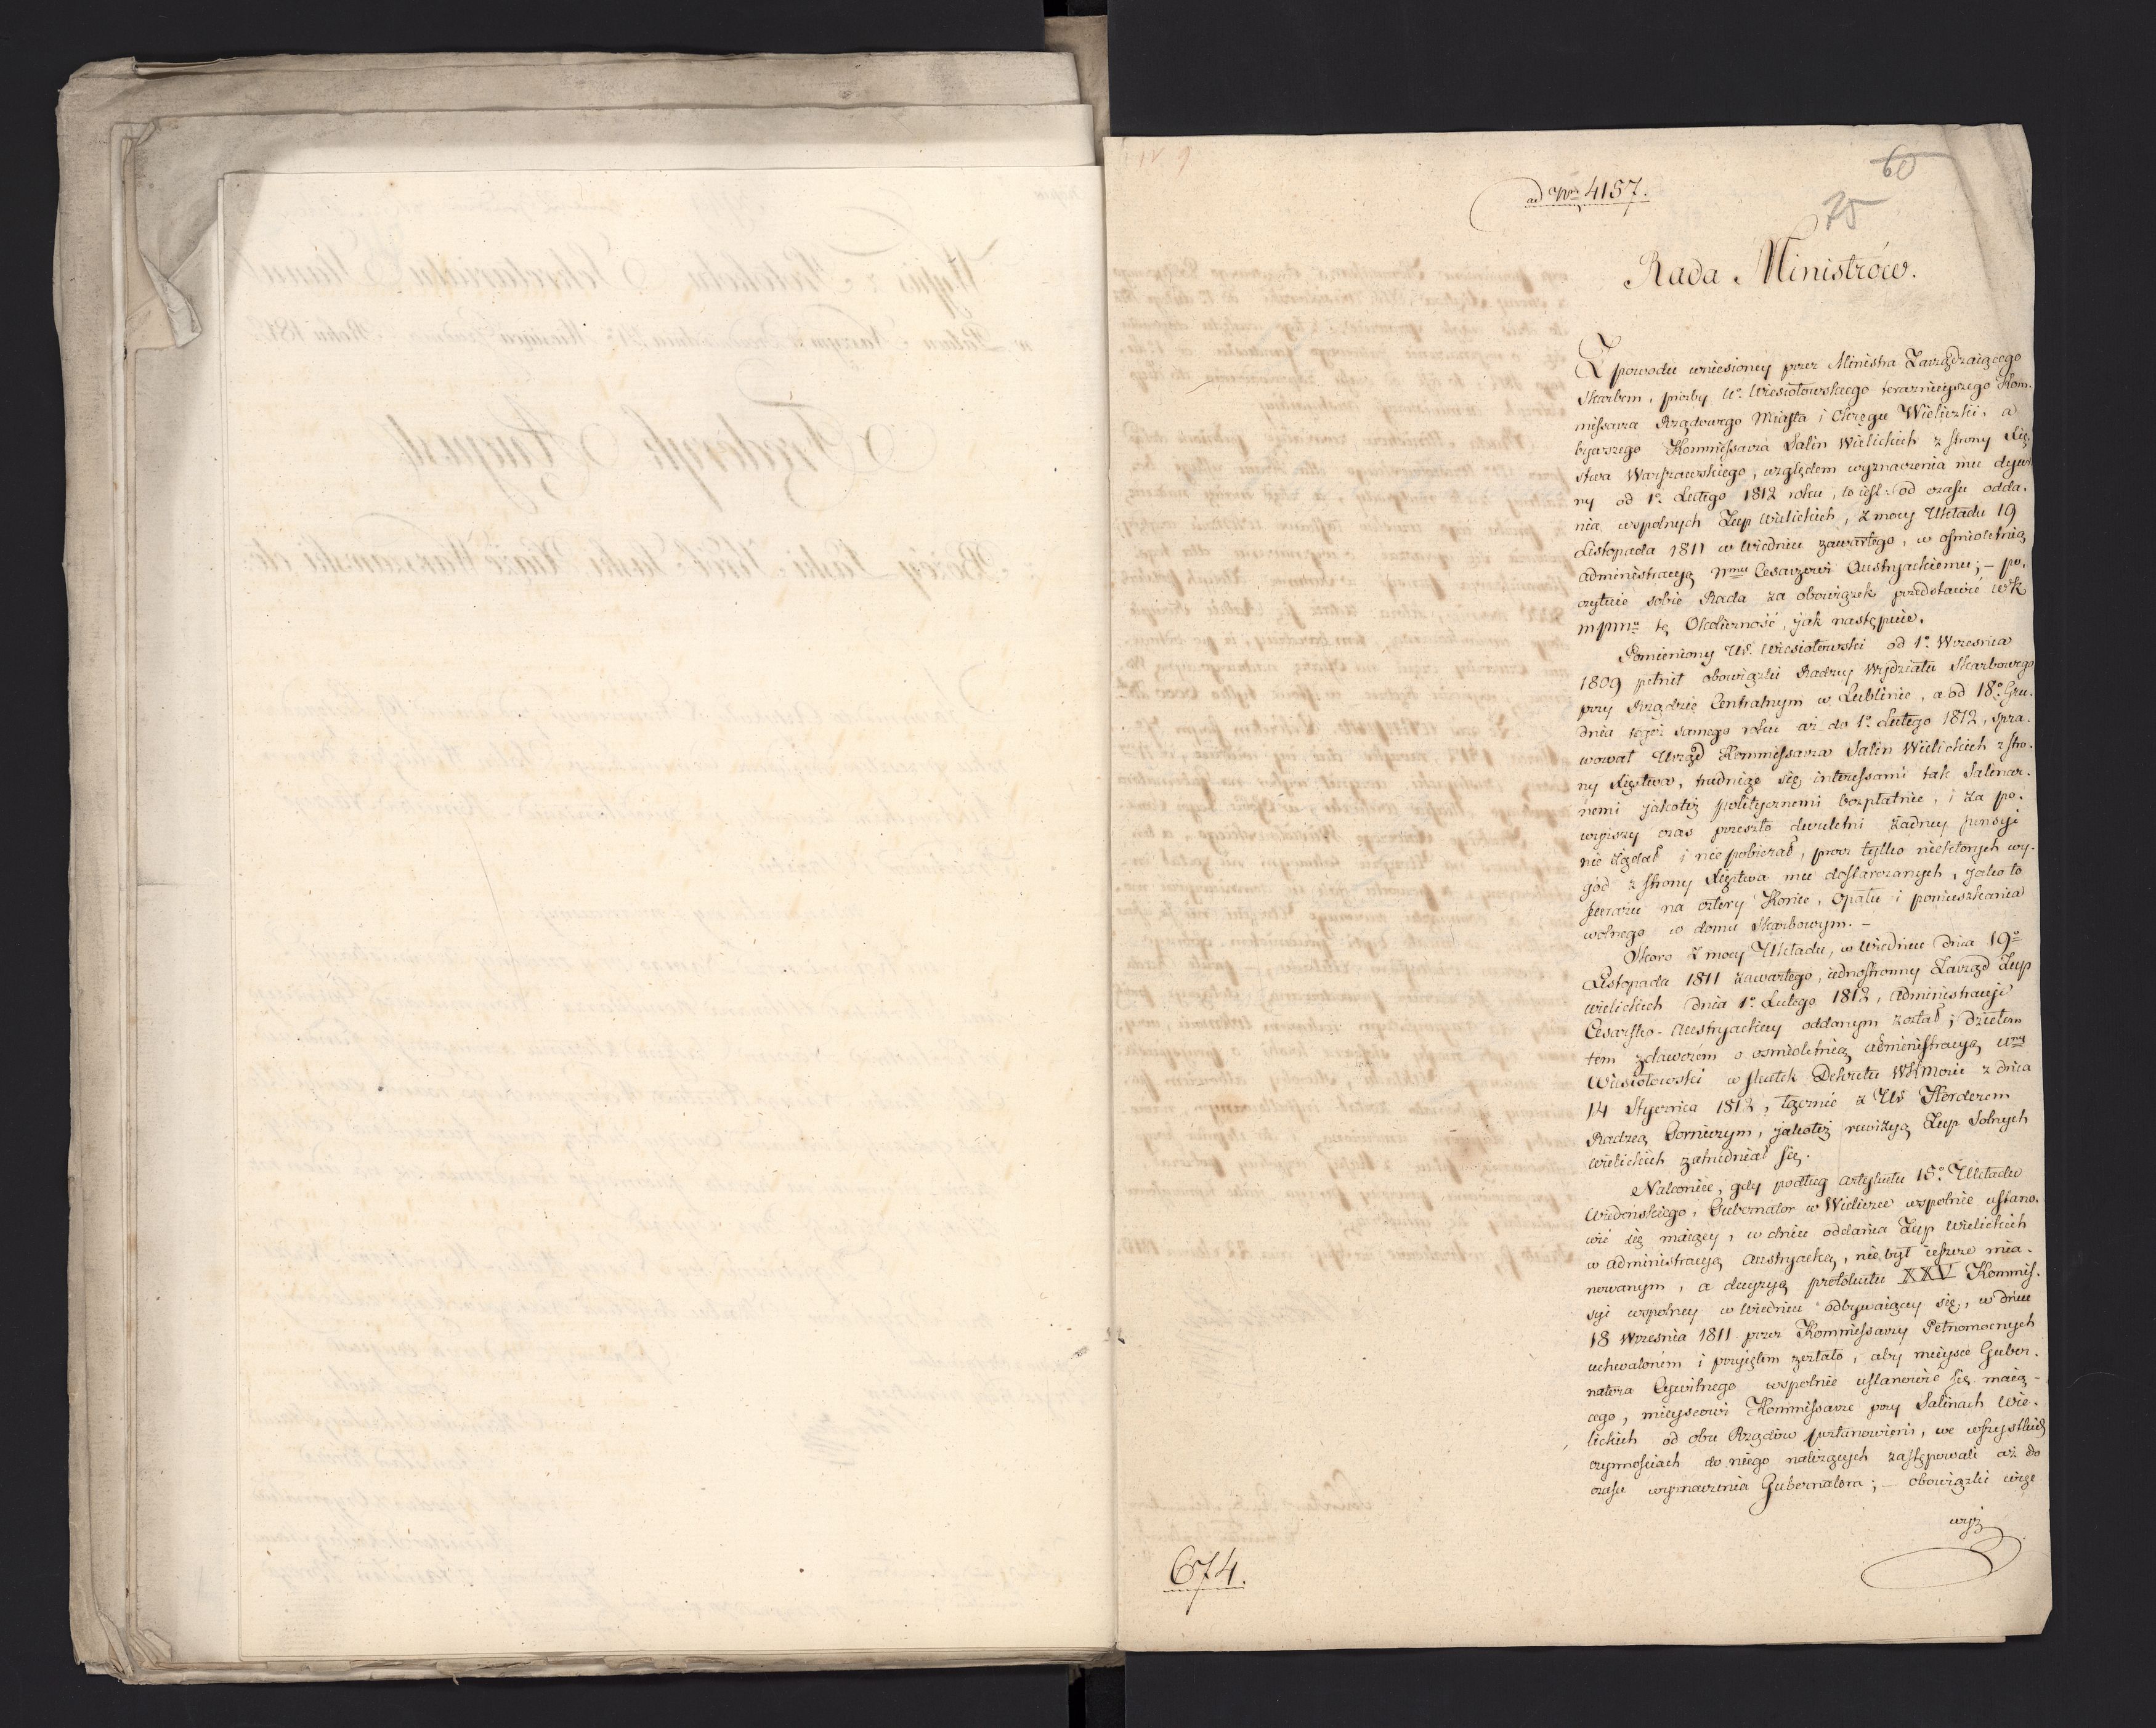 60
ad Nrm 4157.
75
Rada Ministrów.
Z powodu wniesioney przez Ministra Zarządzaiącego
Skarbem, prośby Ur. Wiesiołowskiego teraznieyszego Kom-
missarza Rządowego Miasta i Okręgu Wieliczki, a
bywszego Kommissarza Salin Wielickich z strony Xię-
stwa Warszawskiego, względem wyznaczenia mu dyur-
ny od 1o Lutego 1812 roku, to iest: od czasu odda-
nia wspolnych Zup Wielickich, z mocy Układu 19
Listopada 1811 w Wiedniu zawartego, w osmioletnią
administracyą Nmu Cesarzowi Austryackiemu; – po-
czytuie sobie Rada za obowiązek przedstawić WK
Mści tę Okoliczność, jak następuie.
Pomieniony Ur. Wiesiołowski od 1o Wrzesnia
1809 pełnił obowiązki Radzcy Wydziału Skarbowego
przy Rządzie Centralnym w Lublinie, a od 18o Gru-
dnia tegoż samego roku aż do 1o Lutego 1812, spra-
wował Urząd Kommissarza Salin Wielickich z stro-
ny Xięstwa, trudniąc się interessami tak Salinar-
nemi jakoteż politycznemi bezpłatnie, i za po-
wyższy czas przeszło dwuletni żadney pensyi
nie żądał i nie pobierał, procz tylko niektorych wy-
gód z strony Xięstwa mu dostarczanych, jako to
furażu na cztery Konie, Opału i pomieszkania
wolnego w domu Skarbowym. –
Skoro z mocy Układu, w Wiedniu dnia 19o
Listopada 1811 zawartego, iednostronny Zarząd Zup
Wielickich dnia 1o Lutego 1812, administracyi
Cesarsko-Austryackiey oddanym został; dziełem
tem zdawczem o osmioletnią administracyą Urny
Wiesiołowski w skutek Dekretu WKMości z dnia
14 Stycznia 1812, łącznie z Ur Horderem
Radzcą Gorniczym, jakoteż rewizyą Zup Solnych
Wielickich zatrudniał się.
Nakoniec, gdy podług artykułu 15o Układu
Wiedenskiego, Gubernator w Wieliczce wspolnie ustano-
wić się maiący, w dniu oddania Zup Wielickich
w administracyą Austryacką, nie był ieszcze mia-
nowanym, a decyzyą protokułu XXV Kommis-
syi wspolney w Wiedniu odbywaiącey się, w dniu
18 Wrzesnia 1811 przez Kommissarzy Pełnomocnych
uchwalonem i przyjętem zostało, aby mieysce Guber-
natora Cywilnego wspolnie ustanowić się maią-
cego, mieyscowi Kommissarze przy Salinach Wie-
lickich od obu Rządów postanowieni, we wszystkich
czynnościach do niego należących zastępowali aż do
czasu wyznaczenia Gubernatora; – obowiązki więc
wyż
674.